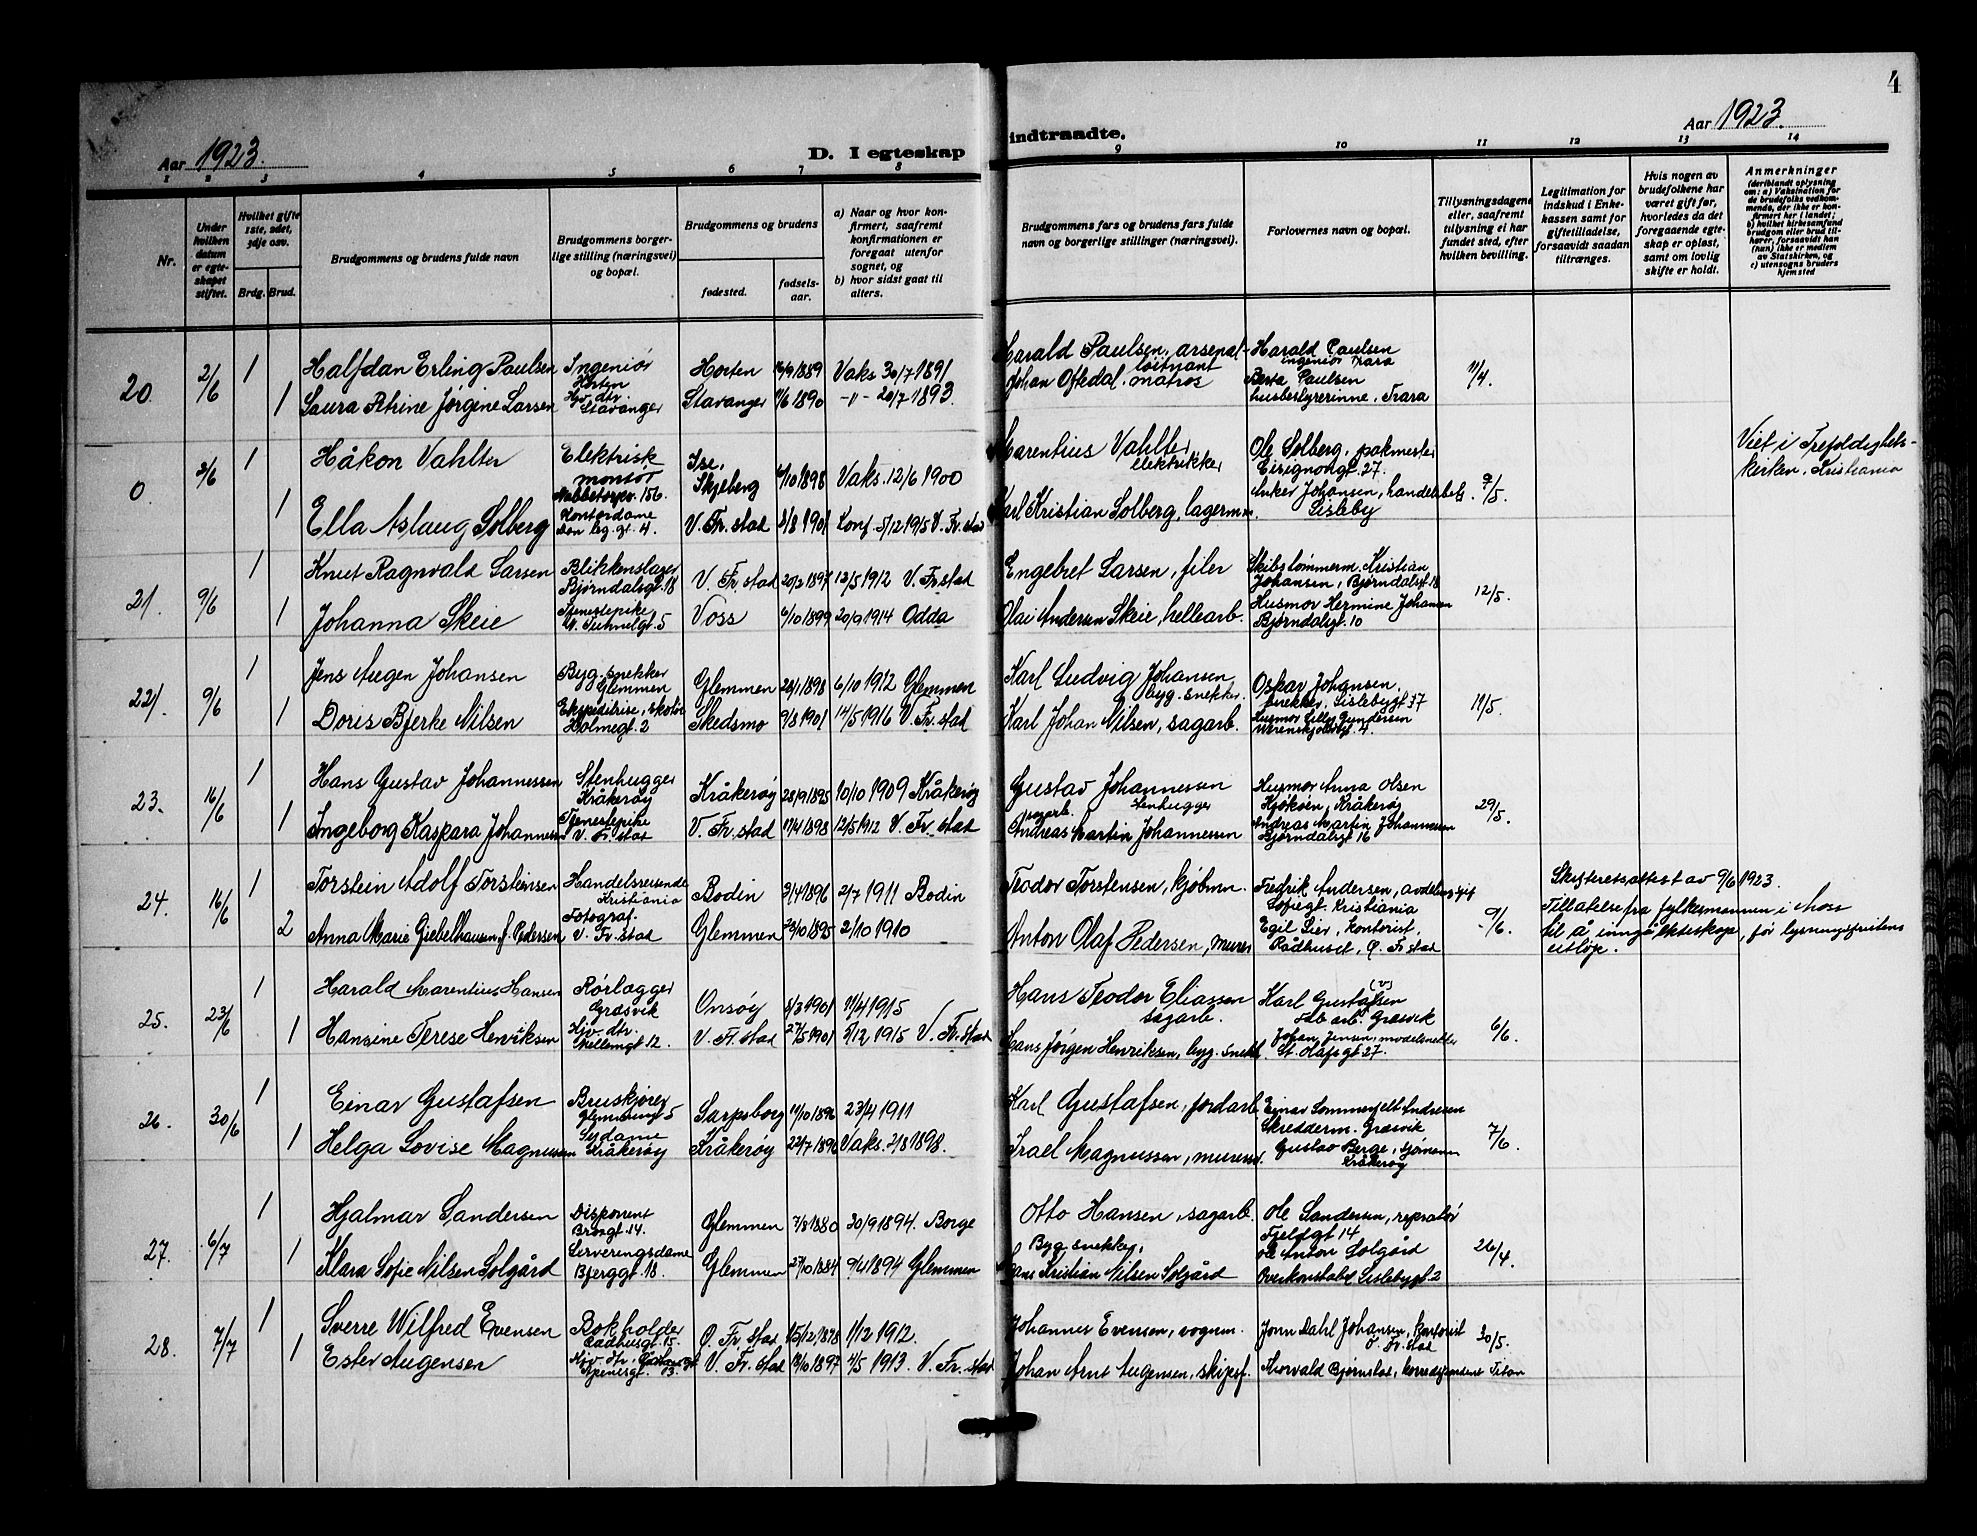 4
Aar 1923.
D. I egteskap
indtraadte.
Aar 1923.
1 2 3 4 5 6 7 8 9 10 11 12 13 14
Nr.
Under hvilken datum er egteskapet stiftet.
Hvilket gifte 1ste, 2det, 3dje osv.
Brdg. Brud.
Brudgommens og brudens fulde navn
Brudgommens borgerlige stilling (næringsvei) og bopæl.
Brudgommens og brudens
fødested.
fødselsaar.
a) Naar og hvor konfirmert, saafremt konfirmationen er foregaat utenfor sognet, og
b) hvor sidst gaat til alters.
Brudgommens fars og brudens fars fulde navn og borgerlige stillinger (næringsvei).
Forlovernes navn og bopæl.
Tillysningsdagene eller, saafremt tillysning ei har fundet sted, efter hvilken bevilling.
Legitimation for indskud i Enkekassen samt for giftetilladelse, forsaavidt saadan tiltrænges.
Hvis nogen av brudefolkene har været gift før, hvorledes da det foregaaende egteskap er opløst, samt om lovlig skifte er holdt.
Anmerkninger
(deriblandt oplysning om: a) Vaksination for de brudefolks vedkommende, der ikke er konfirmert her i landet; b) hvilket kirkesamfund brudgom eller brud tilhører, forsaavidt han (hun) ikke er medlem av Statskirken, og c) utensogns bruders hjemsted
20. 2/6 1 Halfdan Erling Paulsen Ingeniør Horten Horten 1889 Vaks. 30/7 1891 Harald Paulsen, arsenalløitnant Harald Paulsen ingeniør Trara 11/4.
1 Laura Petrine Jørgine Larsen Hjv. dtr. Stavanger Stavanger 1/6 1890 -"- 20/7 1893. Johan Oftedal, matros Berta Paulsen husbestyrerinne, Trara
0. 2/6 1 Håkon Vahlter Elektrisk montør Nabbetorpv. 156. Ise, Skjeberg 4/10 1898 Vaks. 12/6 1900 Marentius Vahlter elektrikker Ole Solberg, pakmester 27. 9/5. Viet i Trefoldighetskirken, Kristiania
1 Ella Aslaug Solberg Kontordame V. Fr.stad 3/8 1901 Konf. 5/12 1915 V. Fr.stad Karl Kristian Solberg, lagerm. Anker Johansen, Lisleby
21. 9/6 1 Knut Ragnvald Larsen Blikkenslager Bjørndalsgt. 18 V. Fr.stad 20/2 1897 12/5 1912 V. Fr.stad Engebret Larsen, filer Skibstømmerm. Kristian Johansen, Bjørndalsgt 18 12/5.
1 Johanna Skeie Tjenestepike 5 Voss 6/10 1899 20/9 1914 Odda Olai Andersen Skeie, hellearb. Husmor Hermine Johansen Bjørndalsgt. 10
22. 9/6 1 Jens Aagen Johansen Byg.snekker Glemmen Glemmen 28/1 1898 6/10 1912 Glemmen Karl Ludvig Johansen byg. snekker. Oskar Johansen, snekker, Lislebygt 37 11/5.
1 Doris Bjerke Nilsen Holmegt. 2 Skedsmo 9/8 1901 14/5 1916 V. Fr.stad Karl Johan Nilsen, sagarb. Husmor Lilly Gundersen 4.
23. 16/6 1 Hans Gustav Johannessen Stenhugger Kråkerøy Kråkerøy 28/9 1895 10/10 1909 Kråkerøy Gustav Johannessen stenhugger Husmor Anna Olsen Kjøkøen, Kråkerøy 29/5.
1 Ingeborg Kaspara Johannessen Tjenestepike V. Fr.stad V. Fr.stad 17/4 1898 12/5 1912 V. Fr.stad sagarb. Andreas Martin Johannessen Andreas Martin Johannessen Bjørndalsgt 16
24. 16/6 1 Torstein Adolf Torsteinsen Handelsreisende Kristiania Bodin 3/4 1896 2/7 1911 Bodin Teodor Torstensen, kjøbmn. Fredrik Andersen, Sofiegt Kristiania 9/6. Skifteretsattest av 9/6 1923.
2 Anna Marie Giebelhausen f. Pedersen Fotograf. V. Fr.stad Glemmen 23/10 1895 2/10 1910 Anton Olaf Pedersen, murer Egil Lier, kontorist, Rådhuset, Ø. Fr.stad Tillatelse fra fylkesmannen i Moss til å inngå ekteskap, før lysningsfristens utløp.
25. 23/6 1 Harald Marentius Hansen Rørlægger Gresvik Onsøy 5/3 1901 11/4 1915 Hans Teodor Eliassen sagarb. Karl Gustafsen (v) fab arb. Gresvik 6/6.
1 Hansine Terese Henriksen Hjv. dtr. 12. V. Fr.stad 27/5 1901 5/12 1915 V. Fr.stad Hans Jørgen Henriksen, byg. snekk. Johan Jensen, modelsnekker St. Olafsgt 27.
26. 30/6 1 Einar Gustafsen Bruskjører Glemmengt 5 Sarpsborg 11/10 1896 23/4 1911 Karl Gustafsen, jordarb. Einar Sommerfelt Andresen Skredderm. Gresvik 7/6.
1 Helga Lovise Magnussen Sydame Kråkerøy Kråkerøy 22/7 1896 Vaks. 2/8 1898. Israel Magnussen, murersv. Gustav Berge, sjømann Kråkerøy
27. 6/7 1 Hjalmar Sandersen Disponent Brogt 14. Glemmen 7/8 1880 30/9 1894. Borge Otto Hansen, sagarb. Ole Sandersen, repsalør Fjeldgt 14 26/4.
1 Klara Sofie Nilsen Solgård Serveringsdame Bjerggt. 18. Glemmen 27/10 1884 9/4 1894 Glemmen Byg.snekker, Hans Kristian Nilsen Solgård Ole Anton Solgård Overkonstabel Lislebygt 2
28. 7/7 1 Sverre Wilfred Evensen Bokholder Raadhusgt. 15. Ø. Fr.stad 15/12 1898 1/12 1912. Johannes Evensen, vognm. Jonn Dahl Johansen, kontorist Ø. Fr.stad 30/5.
1 Ester Augensen Hjv. dtr., V. Fr.stad 13/10 1897 4/5 1913. V. Fr.stad Johan Arnt Augensen, skipsf. Thorvald Bjørnstad, korrespondent Titan